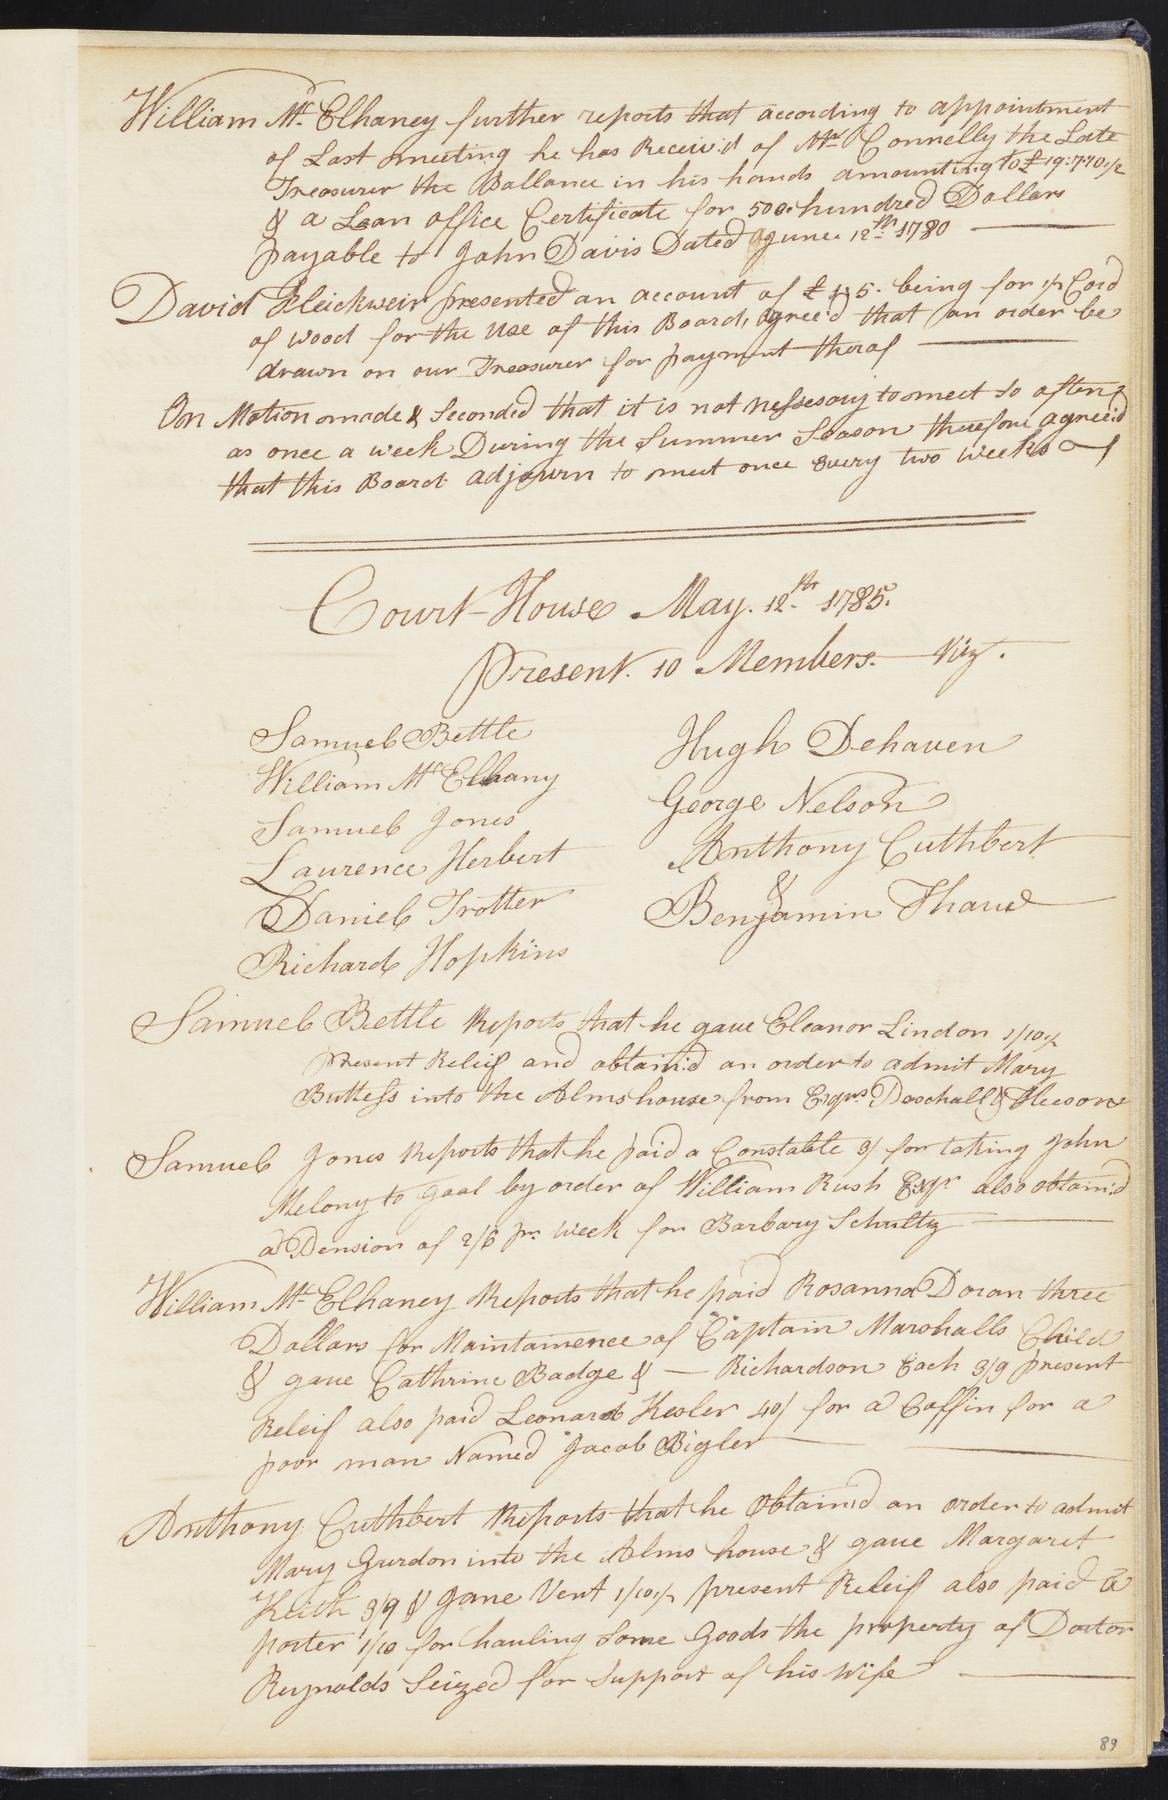 William Mc. Elhaney further reports that according to appointment
of Last meeting he has Receiv'd of Mr. Connelly the Late
Treasurer the Ballance in his hands amounting to £19:7:10½
& a Loan office Certificate for 500 hundred Dollars
payable to John Davis Dated June 12th 1780
David presented an account of £1:5. being for ½ Cord
of wood for the Use of this Board, agree'd that an order be
drawn on our Treasurer for payment therof
On Motion made & Seconded that it is not nessesary to meet so often
as once a week During the Summer Season therefore agree'd
that this Board adjourn to meet once every two weeks
Court House May. 12th. 1785.
Present. 10 Members. Viz.
Samuel Bettle
William Mc Elhany
Samuel Jones
Laurence Herbert
Daniel Trotter
Richard Hopkins
Hugh Dehaven
George Nelson
Anthony Cuthbert
&
Benjamin Thaw
Samuel Bettle Reports that he gave Eleanor Lindon 1/10½
present Releif and obtain'd an order to admit Mary
Buttess into the Almshouse from Esqrs. Paschall &
Samuel Jones Reports that he paid a Constable 3/ for taking John
Melony to Goal by order of William Rush Esqr also obtain'd
a Pension of 2/6 pr. week for Barbary Schultz
William Mc. Elhaney Reports that he paid Rosanna Doran three
Dollars for Maintainence of Captain Marshalls Child
& gave Cathrine Badge & — Richardson Each 3/9 present
Releif also paid Leonard Kesler 40/ for a Coffin for a
poor man Named Jacob Bigler
Anthony Cuthbert Reports that he Obtain'd an order to admit
Mary Gurdon into the Alms house & gave Margaret
Keith 3/9 & Jane Vent 1/10½ present Releif also paid a
porter 1/10 for hauling Some Goods the property of Doctor
Reynolds Seized for Support of his Wife
89